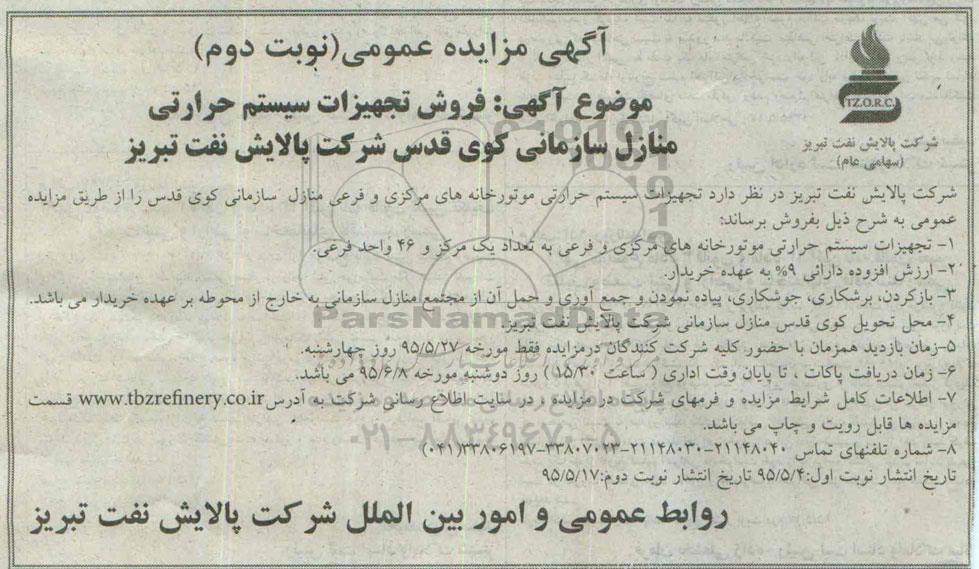 آگهی مزایده عمومی(نوبت دوم)
T.Z.O.R.C.
شرکت پالایش نفت تبریز
(سهامی عام)
موضوع آگهی: فروش تجهیزات سیستم حرارتی
منازل سازمانی کوی قدس شرکت پالایش نفت تبریز
شرکت پالایش نفت تبریز در نظر دارد تجهیزات سیستم حرارتی موتورخانه های مرکزی و فرعی منازل سازمانی کوی قدس را از طریق مزایده
عمومی به شرح ذیل بفروش برساند:
۱- تجهیزات سیستم حرارتی موتورخانه های مرکزی و فرعی به تعداد یک مرکز و ۴۶ واحد فرعی.
۲- ارزش افزوده دارائی ۹% به عهده خریدار.
۳- بازکردن، برشکاری، جوشکاری، پیاده نمودن و جمع آوری و حمل آن از مجتمع منازل سازمانی به خارج از محوطه بر عهده خریدار می باشد.
ParsNamadData
۴- محل تحویل کوی قدس منازل سازمانی شرکت پالایش نفت تبریز.
۵-زمان بازدید همزمان با حضور کلیه شرکت کنندگان درمزایده فقط مورخه ۹۵/۵/۲۷ روز چهارشنبه.
۶- زمان دریافت پاکات ، تا پایان وقت اداری ( ساعت ۱۵/۳۰ ) روز دوشنبه مورخه ۹۵/۶/۸ می باشد.
۷- اطلاعات کامل شرایط مزایده و فرمهای شرکت در مزایده ، در سایت اطلاع رسانی شرکت به آدرس www.tbzrefinery.co.ir قسمت
مزایده ها قابل رویت و چاپ می باشد.
۰۲۱-۸۸۳۴۹۶۷۰-۵
۸- شماره تلفنهای تماس ۲۱۱۴۸۰۴۰-۲۱۱۴۸۰۳۰-۳۳۸۰۷۰۲۳-۳۳۸۰۶۱۹۷(۰۴۱)
تاریخ انتشار نوبت اول:۹۵/۵/۴ تاریخ انتشار نوبت دوم:۹۵/۵/۱۷
روابط عمومی و امور بین الملل شرکت پالایش نفت تبریز